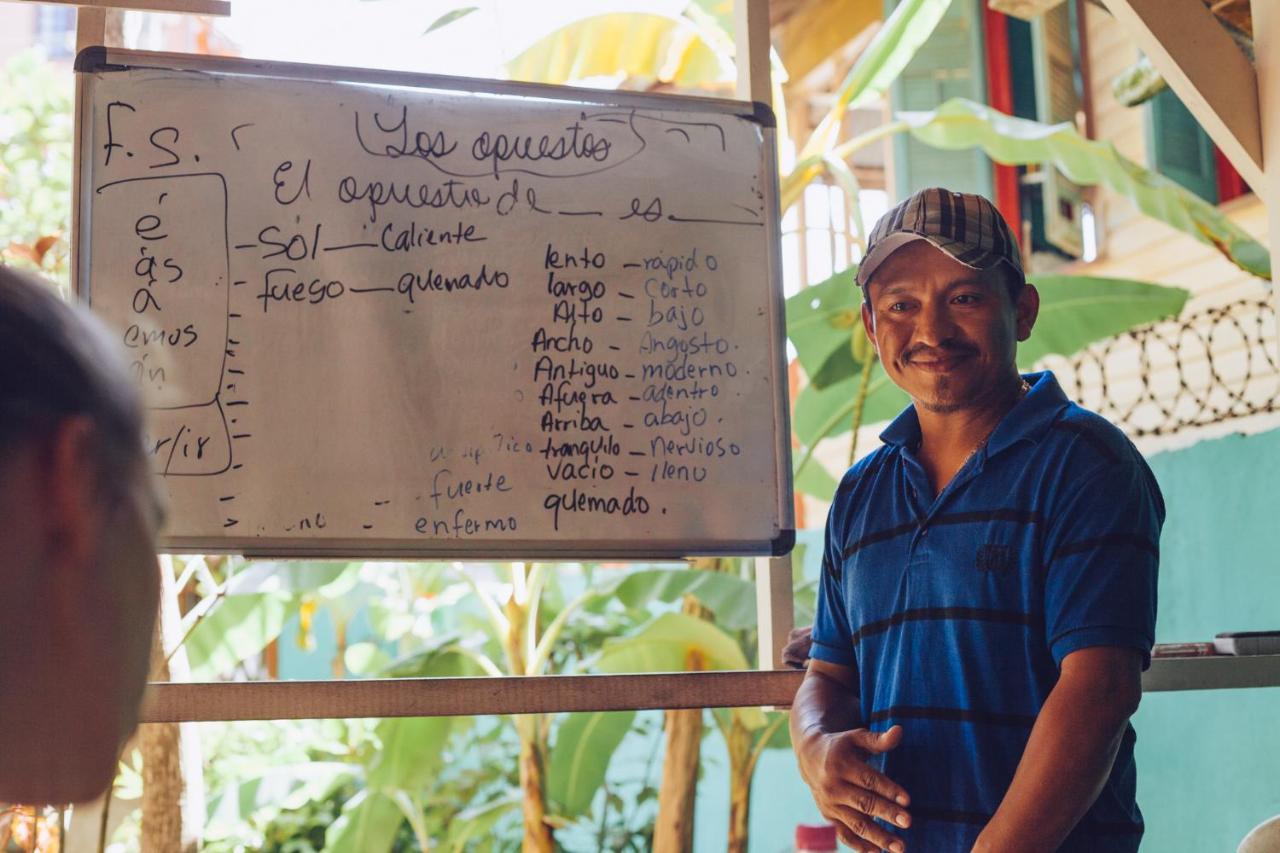 F.S.
Los opuestos
El opuesto de __ es.____
é
ás
á
emos
án
r/ir
- Sol — Caliente
- fuego — quemado
lento - rápido
largo - Corto
Alto - bajo
Ancho - Angosto.
Antiguo - moderno.
Afuera - adentro
Arriba - abajo.
tranquilo - Nervioso
vacio - lleno
quemado.
fuerte
enfermo